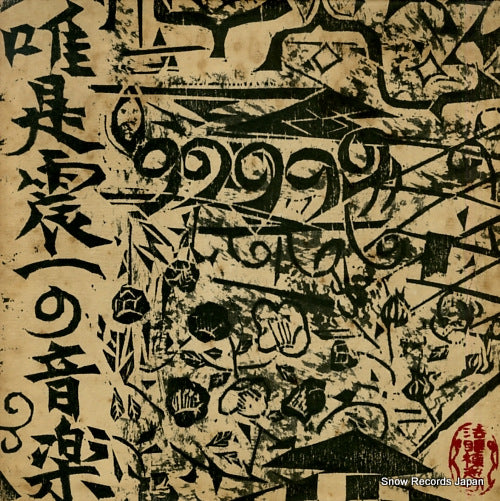 唯是震一の音楽
Snow Records Japan